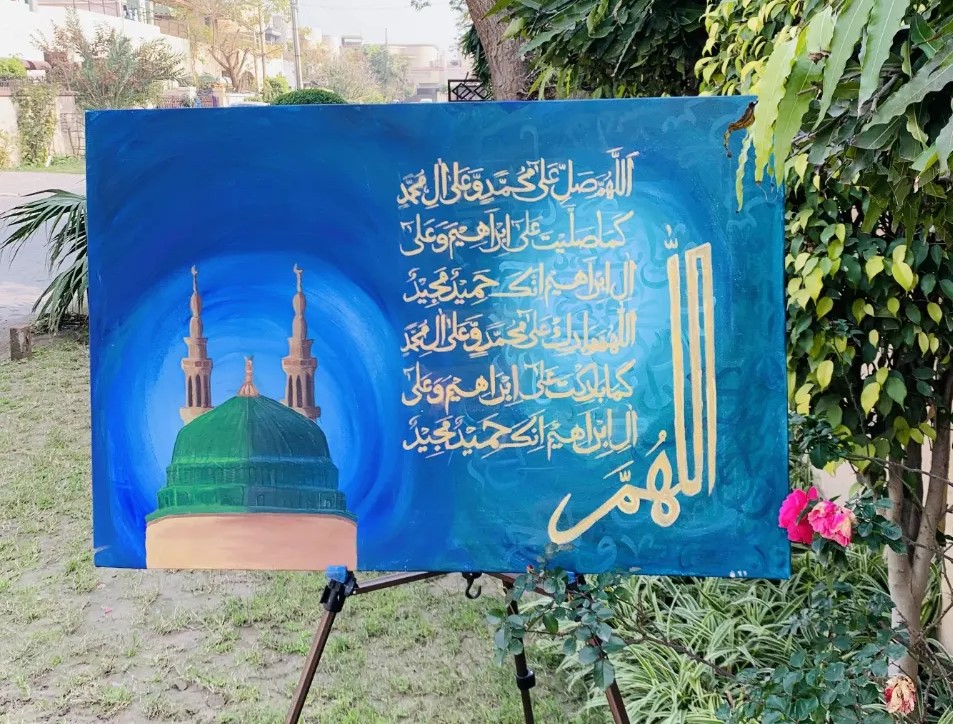 اَللّٰهُمَّ صَلِّ عَلٰى مُحَمَّدٍ وَّعَلٰى اٰلِ مُحَمَّدٍ
كَمَا صَلَّيْتَ عَلٰى اِبْرَاهِيْمَ وَعَلٰى
اٰلِ اِبْرَاهِيْمَ اِنَّكَ حَمِيْدٌ مَّجِيْدٌ
اَللّٰهُمَّ بَارِكْ عَلٰى مُحَمَّدٍ وَّعَلٰى اٰلِ مُحَمَّدٍ
كَمَا بَارَكْتَ عَلٰى اِبْرَاهِيْمَ وَعَلٰى
اٰلِ اِبْرَاهِيْمَ اِنَّكَ حَمِيْدٌ مَّجِيْدٌ
اللّٰهُمَّ